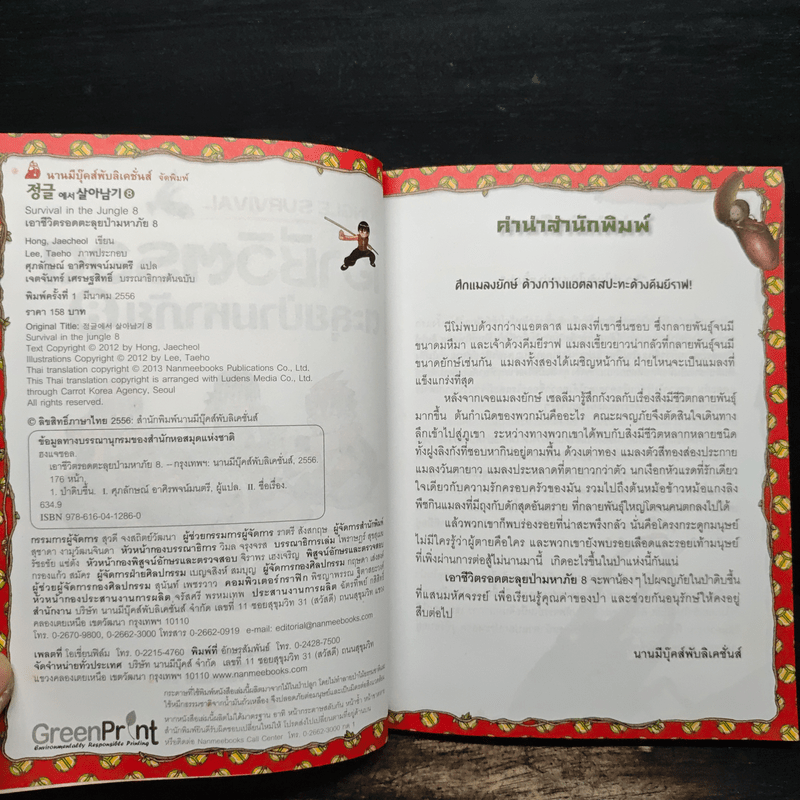 นานมีบุ๊คส์พับลิเคชั่นส์ จัดพิมพ์
정글에서 살아남기 8
Survival in the Jungle 8
เอาชีวิตรอดตะลุยป่ามหาภัย 8
Hong, Jaecheol เขียน
Lee, Taeho ภาพประกอบ
ศุภลักษณ์ อาศิรพจน์มนตรี แปล
เจตจันทร์ เศรษฐสิทธิ์ บรรณาธิการต้นฉบับ
พิมพ์ครั้งที่ 1 มีนาคม 2556
ราคา 158 บาท
Original Title: 정글에서 살아남기 8
Survival in the jungle 8
Text Copyright © 2012 by Hong, Jaecheol
Illustrations Copyright © 2012 by Lee, Taeho
Thai translation copyright © 2013 Nanmeebooks Publications Co., Ltd.
This Thai translation copyright is arranged with Ludens Media Co., Ltd.
through Carrot Korea Agency, Seoul
All rights reserved.
© ลิขสิทธิ์ภาษาไทย 2556: สำนักพิมพ์นานมีบุ๊คส์พับลิเคชั่นส์
ข้อมูลทางบรรณานุกรมของสำนักหอสมุดแห่งชาติ
ฮงแจชอล.
เอาชีวิตรอดตะลุยป่ามหาภัย 8. -- กรุงเทพฯ: นานมีบุ๊คส์พับลิเคชั่นส์, 2556.
176 หน้า.
1. ป่าดิบชื้น. I. ศุภลักษณ์ อาศิรพจน์มนตรี, ผู้แปล. II. ชื่อเรื่อง.
634.9
ISBN 978-616-04-1286-0
กรรมการผู้จัดการ สุวดี จงสถิตย์วัฒนา ผู้ช่วยกรรมการผู้จัดการ ราตรี สังสกฤษ ผู้จัดการสำนักพิมพ์
สุชาดา งามวัฒนจินดา หัวหน้ากองบรรณาธิการ วิมล จรุงจรส บรรณาธิการเล่ม
รัชธชัย แซ่ตั้ง หัวหน้ากองพิสูจน์อักษรและตรวจสอบ จีราพร เฮงเจริญ พิสูจน์อักษรและตรวจสอบ
กรองแก้ว สมัคร ผู้จัดการฝ่ายศิลปกรรม เบญจสิงห์ สมบุญ ผู้จัดการกองศิลปกรรม
ผู้ช่วยผู้จัดการกองศิลปกรรม สุนันท์ เพรราวา คอมพิวเตอร์กราฟิก
หัวหน้ากองประสานงานการผลิต จรัสศรี พรหมเทพ ประสานงานการผลิต
สำนักงาน บริษัท นานมีบุ๊คส์ จำกัด เลขที่ 11 ซอยสุขุมวิท 31 (สวัสดี) ถนนสุขุมวิท
คลองเตยเหนือ เขตวัฒนา กรุงเทพฯ 10110
โทร. 0-2670-9800, 0-2662-3000 โทรสาร 0-2662-0919 e-mail: editorial@nanmeebooks.com
เพลตที่ โอเชี่ยนฟิล์ม โทร. 0-2215-4760 พิมพ์ที่ อักษรสัมพันธ์ โทร. 0-2428-7500
จัดจำหน่ายทั่วประเทศ บริษัท นานมีบุ๊คส์ จำกัด เลขที่ 11 ซอยสุขุมวิท 31 (สวัสดี) ถนนสุขุมวิท
แขวงคลองเตยเหนือ เขตวัฒนา กรุงเทพฯ 10110 www.nanmeebooks.com
กระดาษที่ใช้พิมพ์หนังสือเล่มนี้ผลิตมาจากไม้ในป่าปลูก
ใช้หมึกธรรมชาติจากน้ำมันถั่วเหลือง จึงปลอดภัยต่อมนุษย์
หากหนังสือเล่มนี้ผลิตไม่ได้มาตรฐาน อาทิ หน้ากระดาษสลับกัน หน้าซ้ำ
สำนักพิมพ์ยินดีรับผิดชอบเปลี่ยนใหม่ให้
หรือติดต่อ Nanmeebooks Call Center โทร. 0-2662-3000
GreenPrint
Environmentally Responsible Printing
คำนำสำนักพิมพ์
ศึกแมลงยักษ์ ด้วงกว่างแอตลาสปะทะด้วงคีมยีราฟ!
นีโม่พบด้วงกว่างแอตลาส แมลงที่เขาชื่นชอบ ซึ่งกลายพันธุ์จนมี
ขนาดมหึมา และเจ้าด้วงคีมยีราฟ แมลงเขี้ยวยาวน่ากลัวที่กลายพันธุ์จนมี
ขนาดยักษ์เช่นกัน แมลงทั้งสองได้เผชิญหน้ากัน ฝ่ายไหนจะเป็นแมลงที่
แข็งแกร่งที่สุด
หลังจากเจอแมลงยักษ์ เซลลีมารู้สึกกังวลกับเรื่องสิ่งมีชีวิตกลายพันธุ์
มากขึ้น ต้นกำเนิดของพวกมันคืออะไร คณะผจญภัยจึงตัดสินใจเดินทาง
ลึกเข้าไปสู่ภูเขา ระหว่างทางพวกเขาได้พบกับสิ่งมีชีวิตหลากหลายชนิด
ทั้งฝูงลิงกังที่ชอบหากินอยู่ตามพื้น ด้วงเต่าทอง แมลงตัวสีทองส่องประกาย
แมลงวันตายาว แมลงประหลาดที่ตายาวกว่าตัว นกเงือกหัวแรดที่รักเดียว
ใจเดียวกับความรักครอบครัวของมัน รวมไปถึงต้นหม้อข้าวหม้อแกงลิง
พืชกินแมลงที่มีถุงกับดักสุดอันตราย ที่กลายพันธุ์ใหญ่โตจนคนตกลงไปได้
แล้วพวกเขาก็พบร่องรอยที่น่าสะพรึงกลัว นั่นคือโครงกระดูกมนุษย์
ไม่มีใครรู้ว่าผู้ตายคือใคร และพวกเขายังพบรอยเลือดและรอยเท้ามนุษย์
ที่เพิ่งผ่านการต่อสู้ไม่นานมานี้ เกิดอะไรขึ้นในป่าแห่งนี้กันแน่
เอาชีวิตรอดตะลุยป่ามหาภัย 8 จะพาน้องๆ ไปผจญภัยในป่าดิบชื้น
ที่แสนมหัศจรรย์ เพื่อเรียนรู้คุณค่าของป่า และช่วยกันอนุรักษ์ให้คงอยู่
สืบต่อไป
นานมีบุ๊คส์พับลิเคชั่นส์